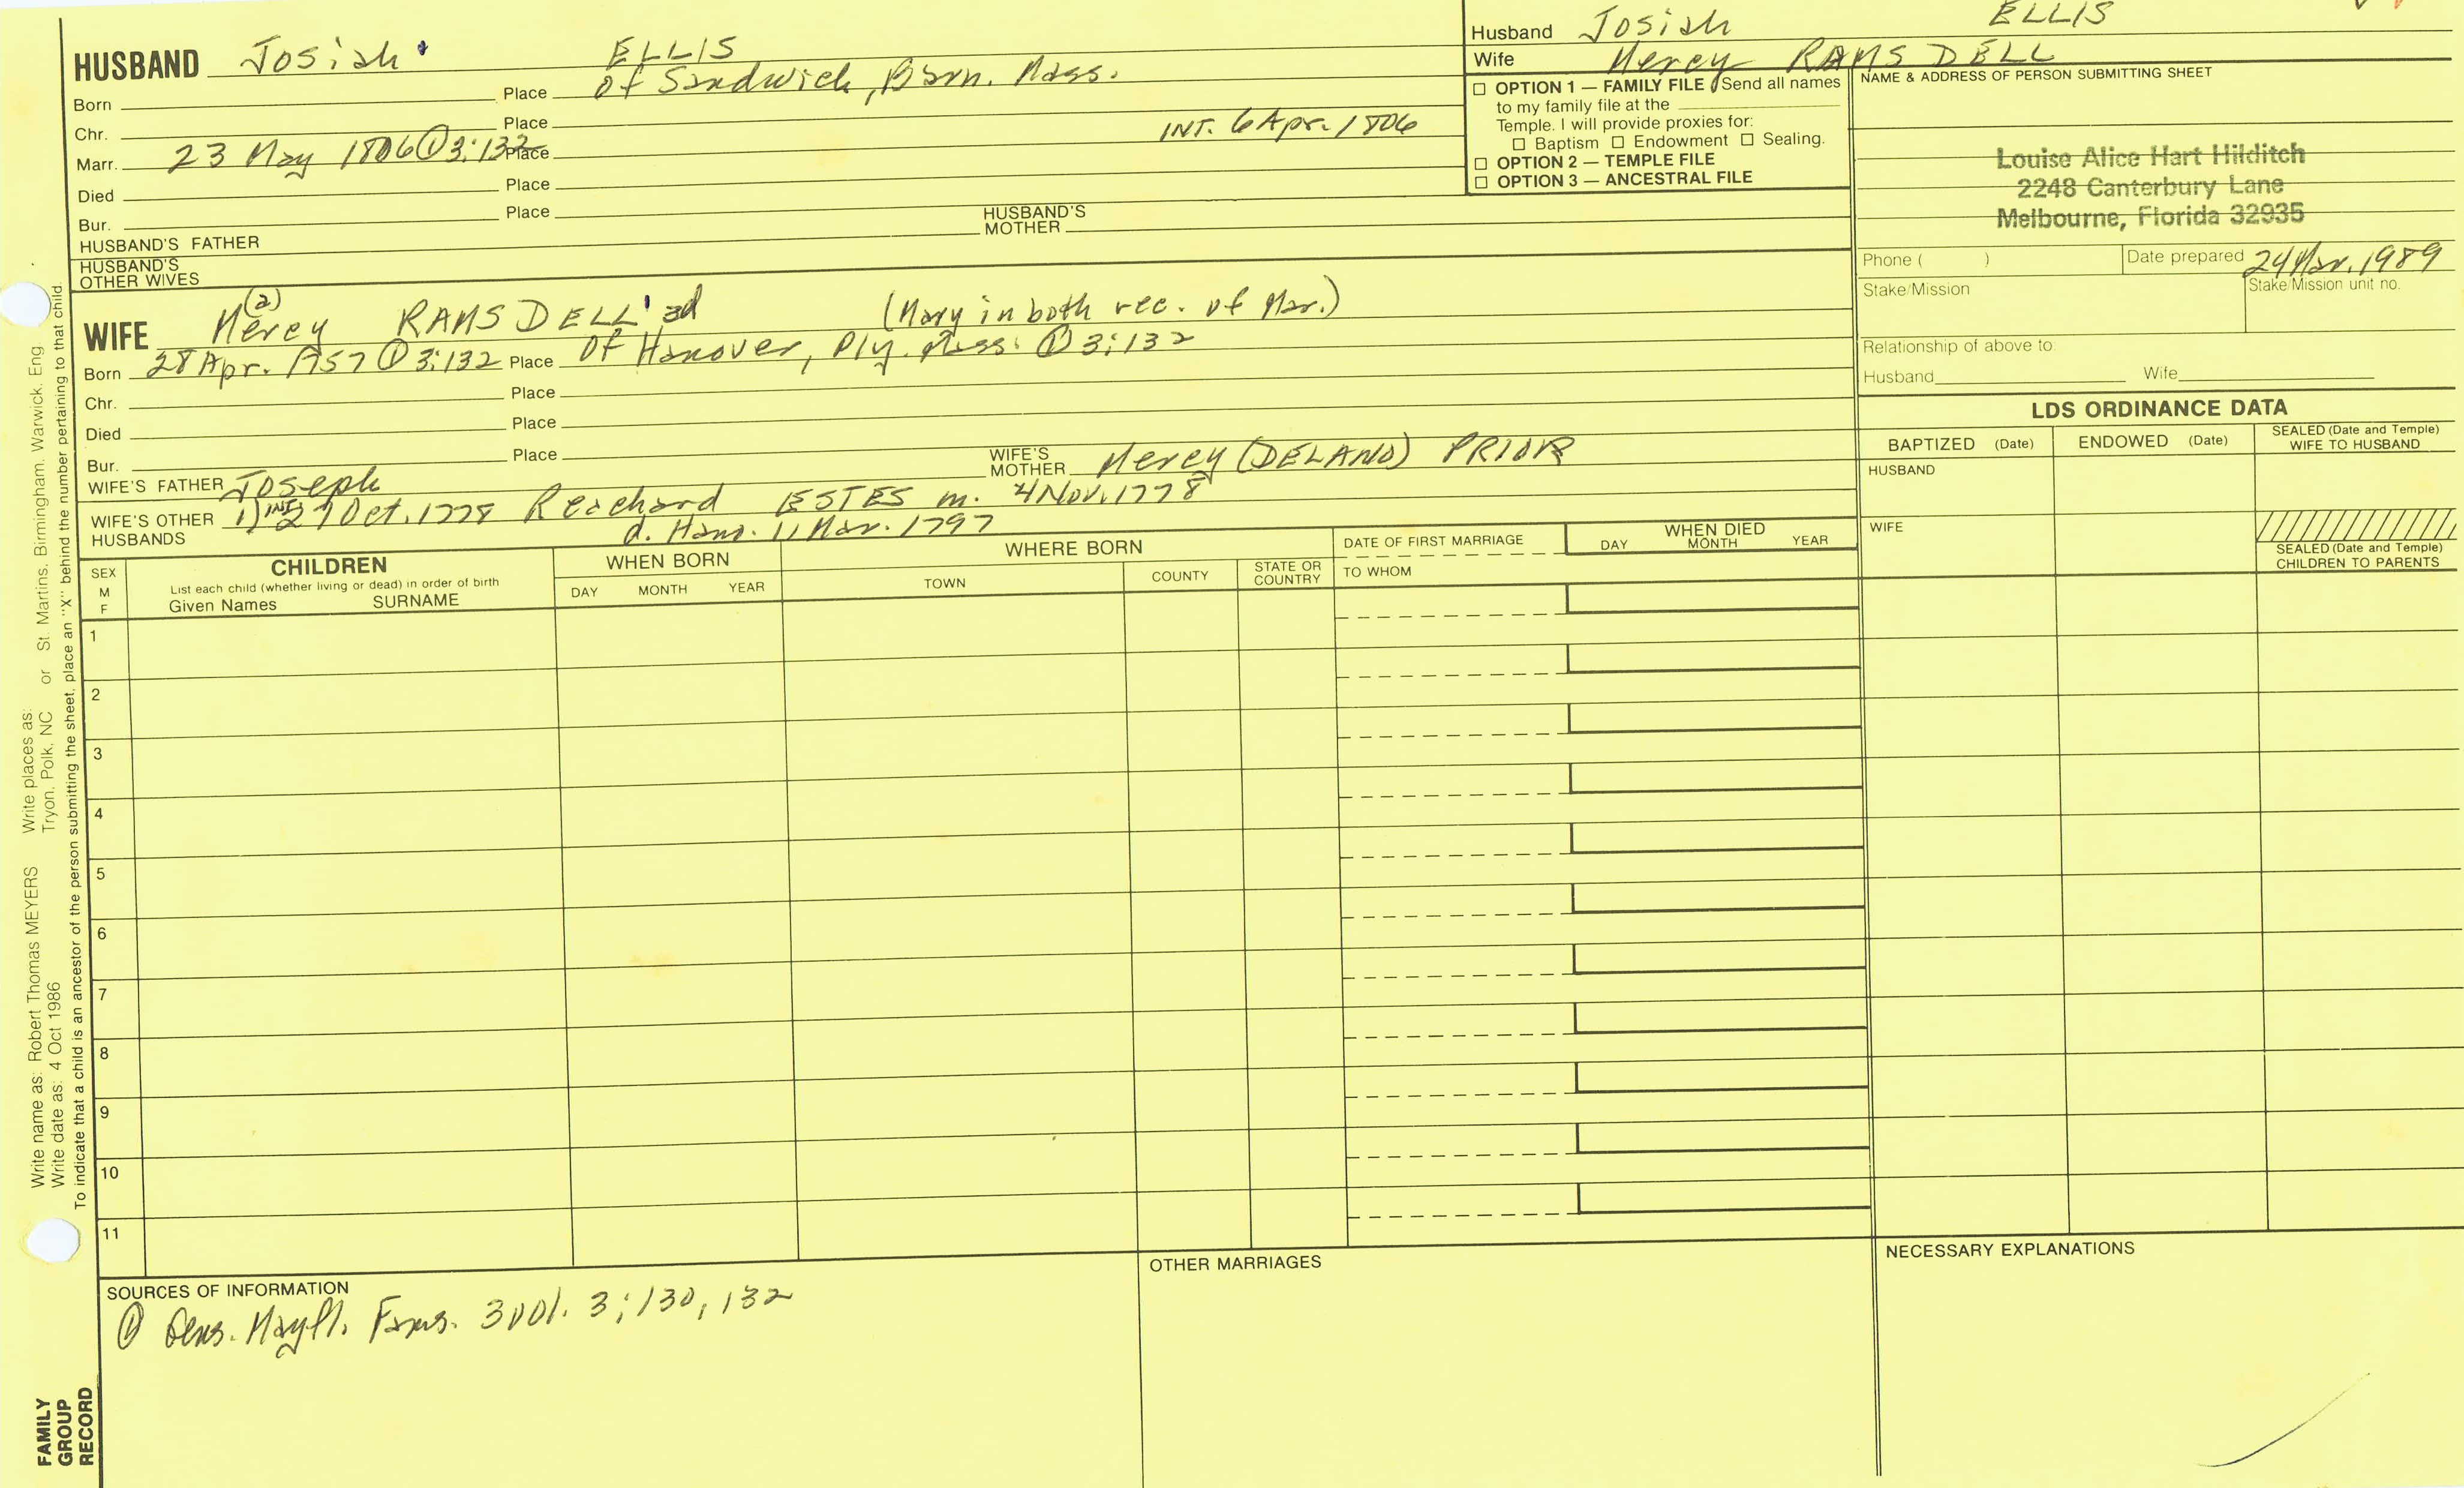 HUSBAND Josiah ELLIS
Born Place of Sandwich, Barn. Mass.
Chr. Place
Marr. 23 May 1806 ① 3:132 Place INT. 6 Apr. 1806
Died Place
Bur. Place
HUSBAND'S FATHER HUSBAND'S MOTHER
HUSBAND'S OTHER WIVES
(2)
WIFE Mercy RAMSDELL 3d (Mary in both rec. of Mar.)
Born 28 Apr. 1757 ① 3:132 Place Of Hanover, Ply. Mass. ① 3:132
Chr. Place
Died Place
Bur. Place
WIFE'S FATHER Joseph WIFE'S MOTHER Mercy (DELANO) PRIOR
WIFE'S OTHER HUSBANDS 1) INT. 27 Oct. 1778 ESTES m. 4 Nov. 1778
d. Hano. 11 Mar. 1797
Husband Josiah ELLIS
Wife Mercy RAMSDELL
☐ OPTION 1 — FAMILY FILE Send all names
to my family file at the
Temple. I will provide proxies for:
☐ Baptism ☐ Endowment ☐ Sealing.
☐ OPTION 2 — TEMPLE FILE
☐ OPTION 3 — ANCESTRAL FILE
NAME & ADDRESS OF PERSON SUBMITTING SHEET
Louise Alice Hart Hilditch
2248 Canterbury Lane
Melbourne, Florida 32935
Phone ( ) Date prepared 24 Mar. 1989
Stake/Mission Stake/Mission unit no.
Relationship of above to
Husband Wife
LDS ORDINANCE DATA
BAPTIZED (Date) ENDOWED (Date) SEALED (Date and Temple) WIFE TO HUSBAND
HUSBAND
WIFE
SEALED (Date and Temple) CHILDREN TO PARENTS
SEX M F
CHILDREN
List each child (whether living or dead) in order of birth
Given Names SURNAME
WHEN BORN
DAY MONTH YEAR
WHERE BORN
TOWN COUNTY STATE OR COUNTRY
DATE OF FIRST MARRIAGE
TO WHOM
WHEN DIED
DAY MONTH YEAR
1
2
3
4
5
6
7
8
9
10
11
SOURCES OF INFORMATION
① Mayfl. Fams. 3:130, 132
OTHER MARRIAGES
NECESSARY EXPLANATIONS
Write name as: Robert Thomas MEYERS Write places as:
Write date as: 4 Oct 1986 Tryon, Polk, NC or St. Martins, Birmingham, Warwick, Eng
To indicate that a child is an ancestor of the person submitting the sheet, place an "X" behind the number pertaining to that child.
FAMILY
GROUP
RECORD